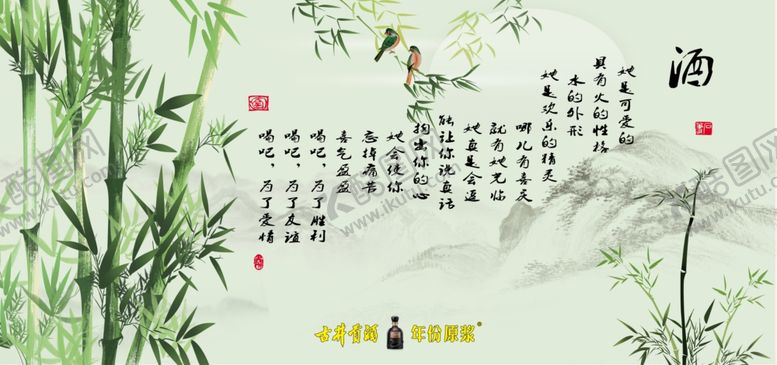 酒
她是可爱的
具有火的性格
水的外形
她是欢乐的精灵
哪儿有喜庆
就有她光临
她真是会逗
能让你说真话
掏出你的心
她会使你
忘掉痛苦
喜气盈盈
喝吧，为了胜利
喝吧，为了友谊
喝吧，为了爱情
古井贡酒 年份原浆®